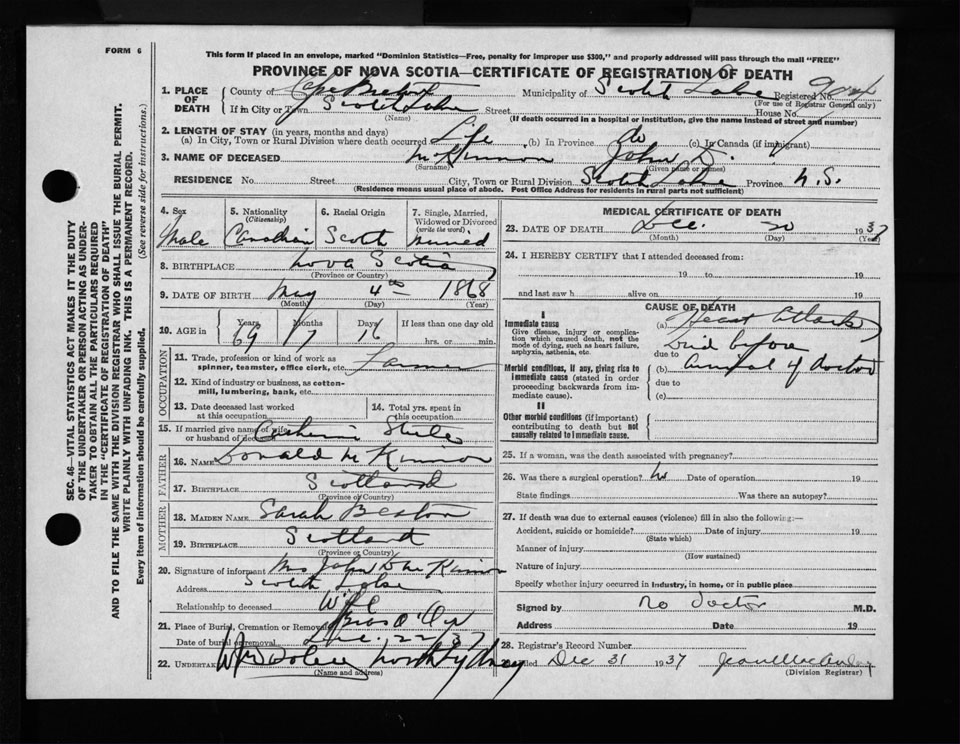 FORM 6
This form if placed in an envelope, marked "Dominion Statistics—Free, penalty for improper use $300," and properly addressed will pass through the mail "FREE"
PROVINCE OF NOVA SCOTIA—CERTIFICATE OF REGISTRATION OF DEATH
1. PLACE OF DEATH County of Cape Breton Municipality of Scotch Lake Registered No.
(For use of Registrar General only)
If in City or Town Scotch Lake Street House No.
(Name) (If death occurred in a hospital or institution, give the name instead of street and number)
2. LENGTH OF STAY (in years, months and days)
(a) In City, Town or Rural Division where death occurred Life (b) In Province do (c) In Canada (if immigrant)
3. NAME OF DECEASED McKinnon John D.
(Surname) (Given name or names)
RESIDENCE No. Street City, Town or Rural Division Scotch Lake Province N.S.
(Residence means usual place of abode. Post Office Address for residents in rural parts not sufficient)
SEC. 46—VITAL STATISTICS ACT MAKES IT THE DUTY
OF THE UNDERTAKER OR PERSON ACTING AS UNDER-
TAKER TO OBTAIN ALL THE PARTICULARS REQUIRED
IN THE "CERTIFICATE OF REGISTRATION OF DEATH"
AND TO FILE THE SAME WITH THE DIVISION REGISTRAR WHO SHALL ISSUE THE BURIAL PERMIT.
WRITE PLAINLY WITH UNFADING INK. THIS IS A PERMANENT RECORD.
Every item of information should be carefully supplied. (See reverse side for instructions.)
4. Sex Male
5. Nationality (Citizenship) Canadian
6. Racial Origin Scotch
7. Single, Married, Widowed or Divorced (write the word) Married
8. BIRTHPLACE Nova Scotia
(Province or Country)
9. DATE OF BIRTH May 4th 1868
(Month) (Day) (Year)
10. AGE in Years 69 Months 7 Days 16 If less than one day old
hrs. or min.
OCCUPATION
11. Trade, profession or kind of work as spinner, teamster, office clerk, etc. Farmer
12. Kind of industry or business, as cotton-mill, lumbering, bank, etc.
13. Date deceased last worked at this occupation
14. Total yrs. spent in this occupation
15. If married give name of wife or husband of deceased Catherine
FATHER
16. NAME Donald McKinnon
17. BIRTHPLACE Scotland
(Province or Country)
MOTHER
18. MAIDEN NAME Sarah Beaton
19. BIRTHPLACE Scotland
(Province or Country)
20. Signature of informant Mrs John D McKinnon
Address Scotch Lake
Relationship to deceased Wife
21. Place of Burial, Cremation or Removal Bras D'Or
Date of burial or removal Dec. 22/37
22. UNDERTAKER North Sydney
(Name and address)
MEDICAL CERTIFICATE OF DEATH
23. DATE OF DEATH Dec. 20 1937
(Month) (Day) (Year)
24. I HEREBY CERTIFY that I attended deceased from:
19 to 19
and last saw h alive on 19
CAUSE OF DEATH
I
Immediate cause
Give disease, injury or complication which caused death, not the mode of dying, such as heart failure, asphyxia, asthenia, etc.
(a) Heart Attack
Died before
due to
Morbid conditions, if any, giving rise to immediate cause (stated in order proceeding backwards from immediate cause).
(b) arrival of doctor
due to
(c)
II
Other morbid conditions (if important) contributing to death but not causally related to immediate cause.
25. If a woman, was the death associated with pregnancy?
26. Was there a surgical operation? Date of operation 19
State findings Was there an autopsy?
27. If death was due to external causes (violence) fill in also the following:—
Accident, suicide or homicide? Date of injury 19
(State which)
Manner of injury
(How sustained)
Nature of injury
Specify whether injury occurred in industry, in home, or in public place
Signed by No doctor M.D.
Address Date 19
28. Registrar's Record Number
Filed Dec 31 1937
(Division Registrar)